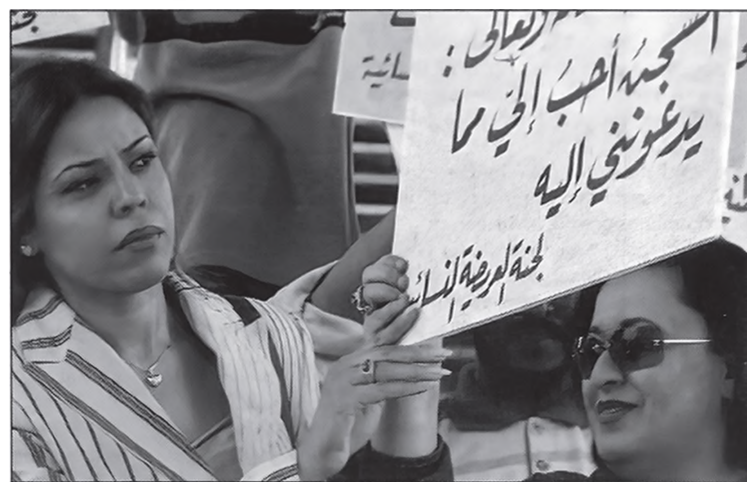 وتعالى :
السجنُ أحبُ إليّ مما
يدعونني إليه
لجنة العريضة النسائ
سائية